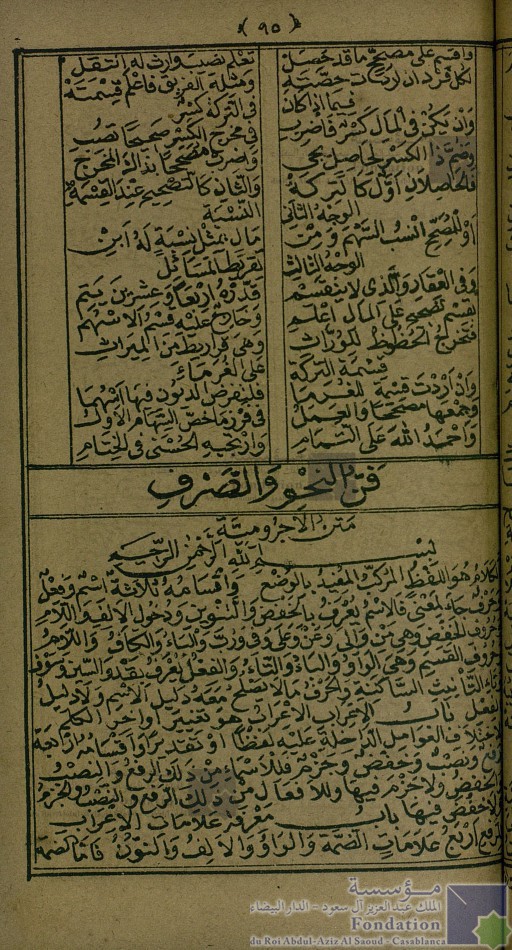 (٩٥)
واقسم على مصحح ما قد حصل
تعلم نصيب وارث له انتقل
وفيما إذا كان
في التركة كسر
وان يكن في المال كسر فاضرب
في مخرج الكسر صحيحا تصب
وضم ذا الكسر لحاصل يجي
واضرب مصححا بذاك المخرج
فالحاصلان اولا كالتركة
والثان كالتصحيح عند القسمة
الوجه الثاني
النسبة
او للمصح انسب السهم ومن
مال بمثل نسبة له ابن
الوجه الثالث
تقريط المسائل
وفي العقار والذي لا ينقسم
قدره اربعا وعشرين يتم
وخارج عليه قسم الاسهم
فتخرج الحظوظ للوراث
وهي قراريط من الميراث
قسمة التركة
على الغرماء
وإذ اردت قسمة للغرما
فلتفرض الديون فيها اسهما
وجمعها مصححا والعمل
واحمد الله على التمام
وارتجيه الحسنى في الختام
فن النحو والتصرف
متن الاجرومية
بسم الله الرحمن الرحيم
الكلام هو اللفظ المركب المفيد بالوضع واقسامه ثلاثة اسم وفعل
وحرف جاء لمعنى فالاسم يعرف بالخفض والتنوين ودخول الالف واللام
وحروف الخفض وهي من والى وعن وعلى وفي ورب والباء والكاف واللام
وحروف القسم وهي الواو والباء والتاء والفعل يعرف بقد والسين وسوف
وتاء التأنيث الساكنة والحرف ما لا يصلح معه دليل الاسم ولا دليل
الفعل باب الاعراب الاعراب هو تغيير اواخر الكلم
لاختلاف العوامل الداخلة عليه لفظا او تقديرا واقسامه اربعة
رفع ونصب وخفض وجزم فللاسماء من ذلك الرفع والنصب
والخفض ولا جزم فيها وللافعال من ذلك الرفع والنصب والجزم
ولا خفض فيها باب معرفة علامات الاعراب
للرفع اربع علامات الضمة والواو والالف والنون فاما الضمة
مؤسسة
الملك عبد العزيز آل سعود - الدار البيضاء
Fondation
du Roi Abdul-Aziz Al Saoud - Casablanca